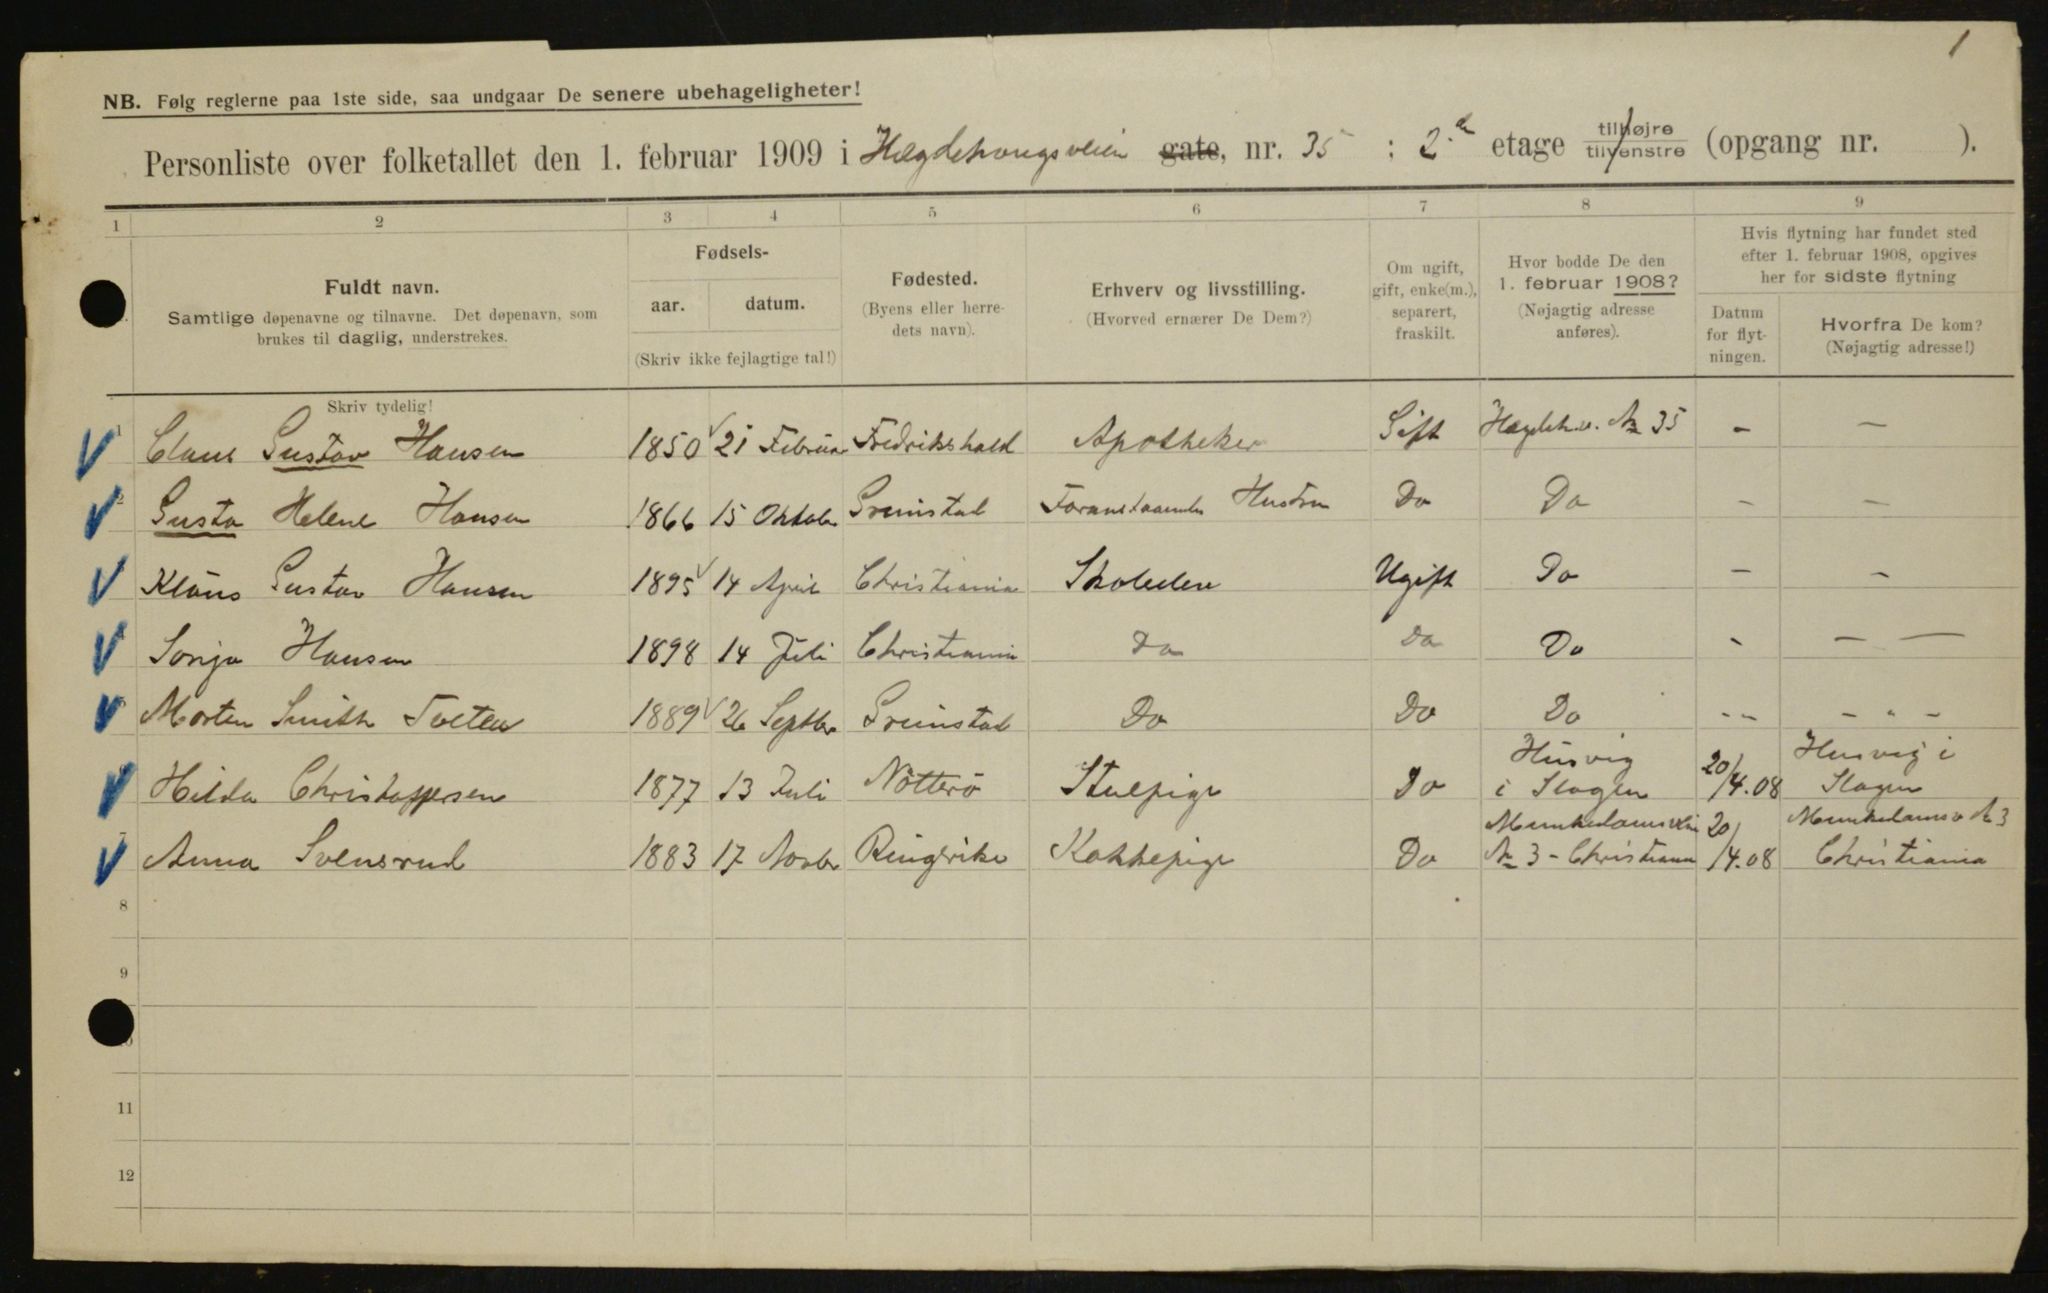 1
NB. Følg reglerne paa 1ste side, saa undgaar De senere ubehageligheter!
Personliste over folketallet den 1. februar 1909 i Hegdehaugsveien gate, nr. 35 : 2.den etage tilhøjre tilvenstre (opgang nr. ).
1 2 3 4 5 6 7 8 9
Fuldt navn.
Samtlige døpenavne og tilnavne. Det døpenavn, som
brukes til daglig, understrekes.
Fødsels-
aar. datum.
(Skriv ikke fejlagtige tal!)
Fødested.
(Byens eller herre-
dets navn).
Erhverv og livsstilling.
(Hvorved ernærer De Dem?)
Om ugift,
gift, enke(m.),
separert,
fraskilt.
Hvor bodde De den
1. februar 1908?
(Nøjagtig adresse
anføres).
Hvis flytning har fundet sted
efter 1. februar 1908, opgives
her for sidste flytning
Datum
for flyt-
ningen.
Hvorfra De kom?
(Nøjagtig adresse!)
Skriv tydelig!
1 Claus Gustav Hansen 1850 21 Februar Fredrikshald Apotheker Gift Hegdeh.v. No 35 - -
2 Gusta Helene Hansen 1866 15 Oktober Grimstad Foranstaaendes Hustru Do Do - -
Klaus Gustav Hansen 1895 14 April Christiania Skoleelev Ugift Do - -
Sonja Hansen 1898 14 Juli Christiania Do Do Do - - -
Morten Smith Tveten 1889 26 Septbr Grimstad Do Do Do - - - " -
Hilda Christophersen 1877 13 Juli Nötterö Stuepige Do Husvig i Slagen 20/4.08 Husvig i Slagen
7 Anna Svensrud 1883 17 Novbr Ringerike Kokkepige Do Munkedamsvein No 3 - Christiania 20/4.08 Munkedamsv No 3 Christiania
8
9
10
11
12